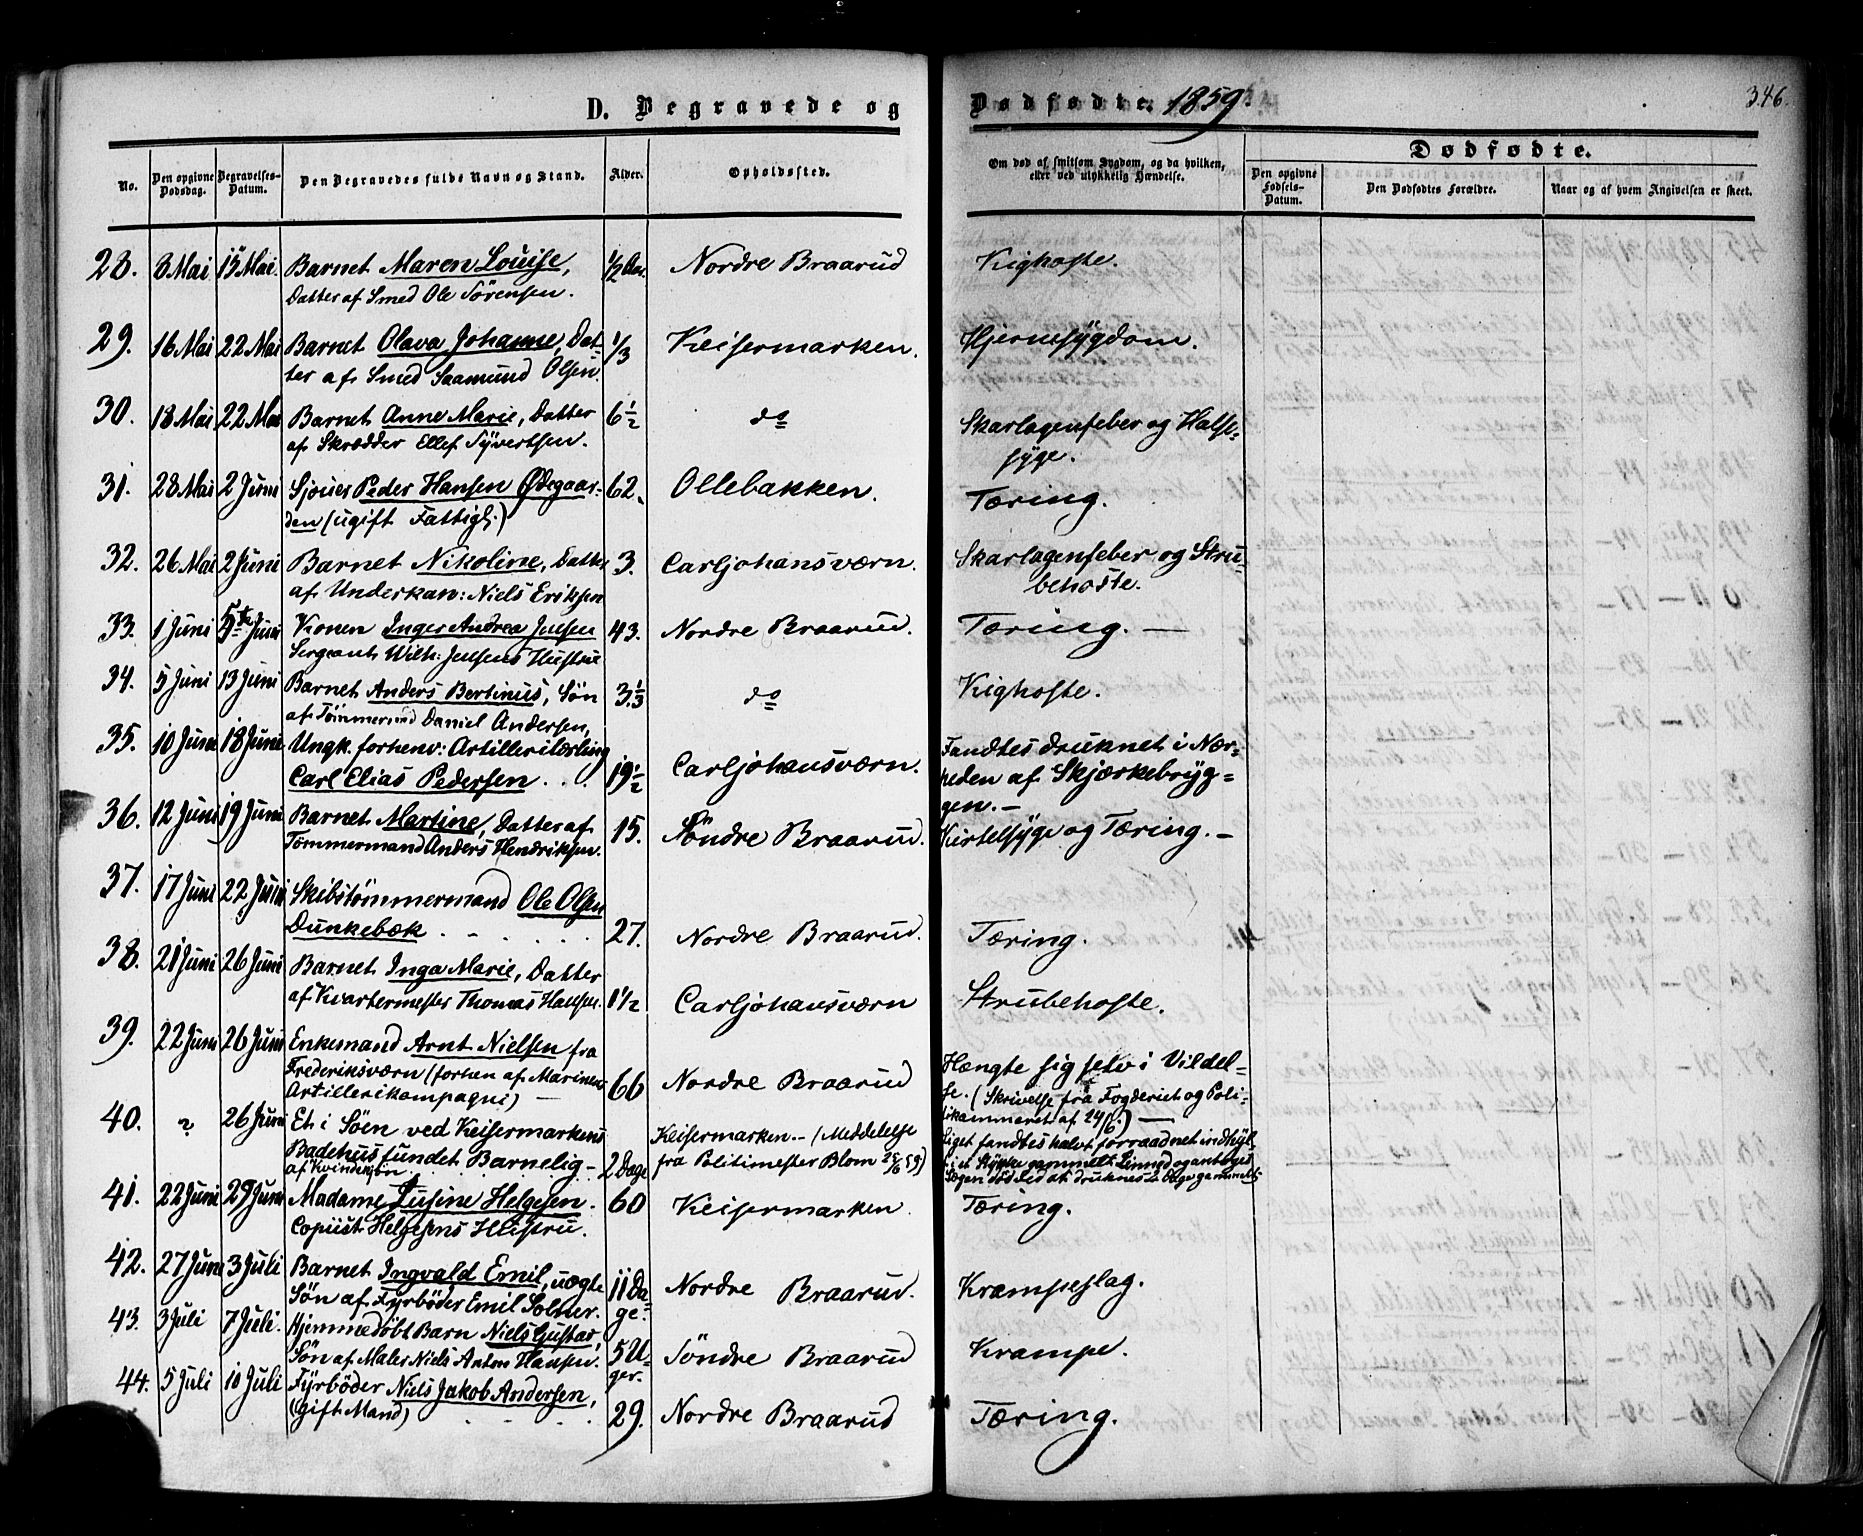 D. Begravede og Dødfødte. 1859. 346.
No. | Den opgivne Dødsdag. | Begravelses-Datum. | Den Begravedes fulde Navn og Stand. | Alder. | Opholdssted. | Om død af smitsom Sygdom, og da hvilken, eller ved ulykkelig Hændelse. | Dødfødte. Den opgivne Fødsels-Datum. | Den Dødfødtes Forældre. | Naar og af hvem Angivelsen er skeet.
28. 8 Mai 15 Mai. Barnet Maren Louise, ½ Aar. Nordre Braarud Kighoste.
Datter af Smed Ole Sörensen.
29. 16 Mai 22 Mai Barnet Olava Johanne, Dat- 1/3 Keisermarken. Hjernesygdom.
ter af Smed Saamund Olsen.
30. 18 Mai 22 Mai Barnet Anne Marie, Datter 6½ do Skarlagensfeber og Halse-
af Skrædder Ellef Syvertsen. syge.
31. 28 Mai 2 Juni Sjouer Peder Hansen Ødegaar- 62. Ollebakken. Tæring.
den (ugift Fattigl.)
32. 26 Mai 2 Juni Barnet Nikoline, Datter 3. Carljohansværn. Skarlagensfeber og Stru-
af Underkan: Niels Eriksen behoste.
33. 1 Juni 5te Juni Konen Inger Andrea Jensen 43. Nordre Braarud. Tæring. —
Sergeant Wilh: Jensens Hustru
34. 5 Juni 13 Juni Barnet Anders Bertinus, Sön 3⅓ do Kighoste.
af Tömmermand Daniel Andersen,
35. 10 Juni 18 Juni Ungk. forhenv: Artillerilærling Fandtes druknet i Nær-
Carl Elias Pedersen . . . 19½ Carljohansværn. heden af Skjærkebryg-
gen. —
36. 12 Juni 19 Juni Barnet Martine, Datter af 15. Söndre Braarud. Kirtelsyge og Tæring. —
Tömmermand Anders Hendriksen.
37. 17 Juni 22 Juni Skibstömmermand Ole Olsen
Dunkebæk . . . . . 27. Nordre Braarud. Tæring.
38. 21 Juni 26 Juni Barnet Inga Marie, Datter
af Kvartermester Thomas Hansen. 1½ Carljohansværn Strubehoste.
39. 22 Juni 26 Juni Enkemand Arnt Nielsen fra Hængte sig selv i Vildel-
Frederiksværn (forhen af Marinens 66 Nordre Braarud se. (Skrivelse fra Fogderiet og Poli-
Artillerikompagni) — tikammeret af 24/6.) —
40. ? 26 Juni Et i Söen ved Keisermarkens Keisermarken. — (Meddelelse Liget fandtes halvt forraadnet indhyl-
Badehus fundet Barnelig — 2 Dage fra Politimester Blom 25/6 59) let i et Stykke gammelt Linned og antages
af Kvindekjön. at druknes 2 Dage gammelt
41. 22 Juni 29 Juni Madame Lusine Helgesen. 60 Keisermarken. Tæring.
Copiist Helgesens Hustru.
42. 27 Juni 3 Juli Barnet Ingvald Emil, uægte 11 Da- Nordre Braarud. Krampeslag.
Sön af Fyrböder Emil Solner. ge.
43. 3 Juli 7 Juli. Hjemmedöbt Barn Niels Gustav,
Sön af Maler Niels Anton Hansen. 5 U- Söndre Braarud Krampe.
ger.
44. 5 Juli 10 Juli Fyrböder Niels Jakob Andersen,
(gift Mand) . . . . 29. Nordre Braarud Tæring.